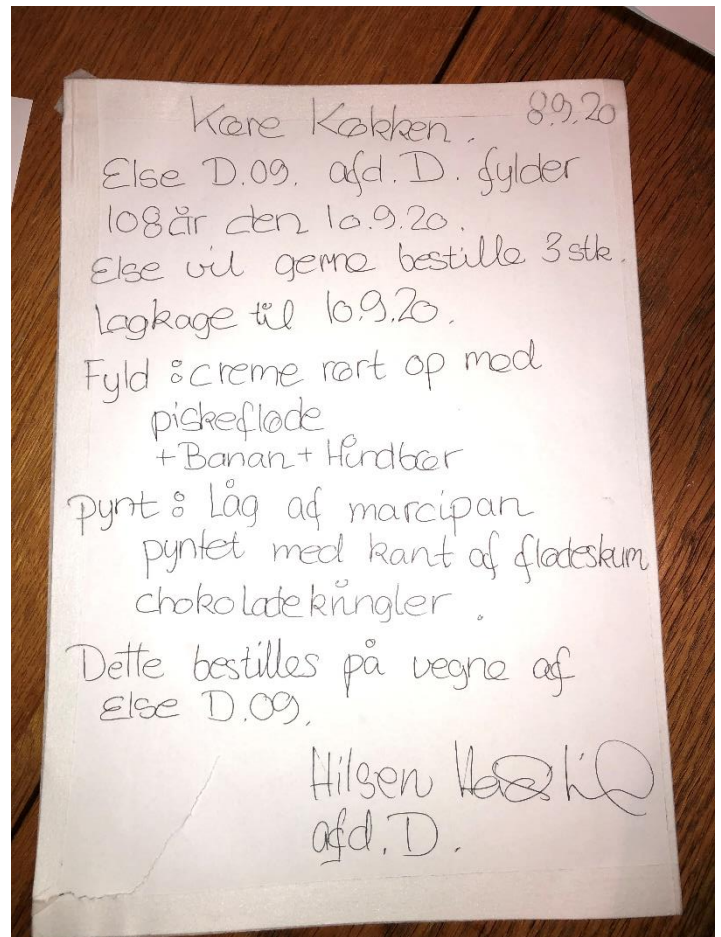 Kære Køkken. 8.9.20
Else D.09. afd. D. fylder
108 år den 10.9.20.
Else vil gerne bestille 3 stk.
Lagkage til 10.9.20.
Fyld: creme rørt op med
piskefløde
+Banan+Hindbær
Pynt: Låg af marcipan
pyntet med kant af flødeskum
chokoladekringler.
Dette bestilles på vegne af
Else D.09.
Hilsen
afd. D.